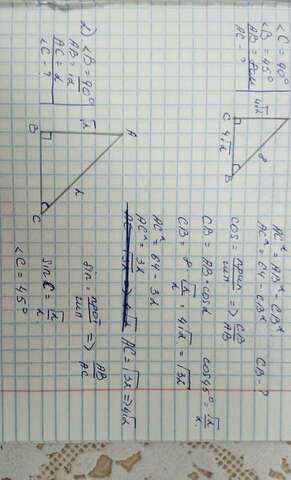 <C = 90°
<B = 45°
AB = 8см
AC ?
4√2
8
C 4√2 B
AC² = AB² - CB²
AC² = 64 - CB²
CB - ?
cos = прил/гип => CB/AB
CB = AB · cosα
cos45° = √2/2
CB = 8 · √2/2 = 4√2 = √32
AC² = 64 - 32
AC² = 32
AC = √32 => 4√2
2) <B = 90°
AB = √2
AC = 2
<C - ?
A
√2
2
B
C
sin = прот/гип => AB/AC
sin C = √2/2
<C = 45°